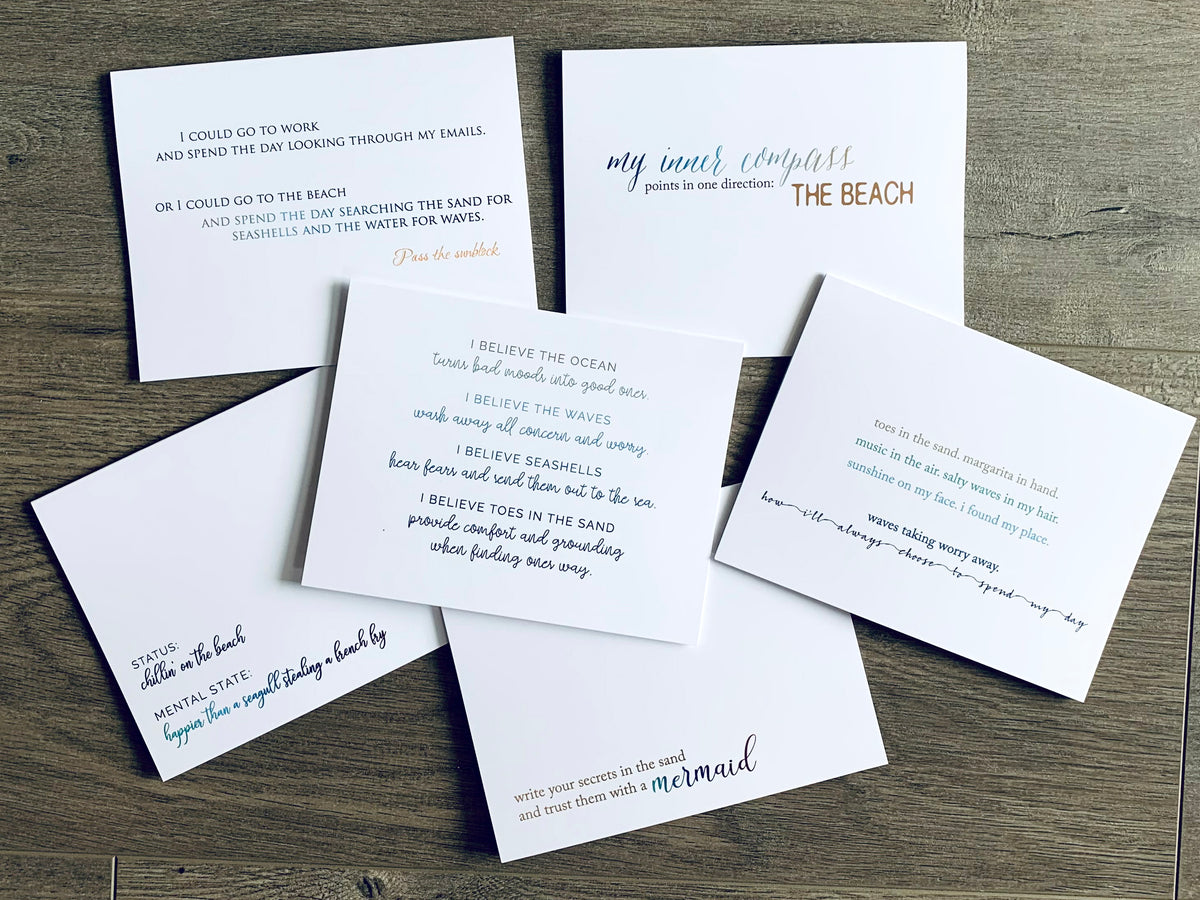 I COULD GO TO WORK
AND SPEND THE DAY LOOKING THROUGH MY EMAILS.
OR I COULD GO TO THE BEACH
AND SPEND THE DAY SEARCHING THE SAND FOR
SEASHELLS AND THE WATER FOR WAVES.
Pass the sunblock
my inner compass
points in one direction:
THE BEACH
I BELIEVE THE OCEAN
turns bad moods into good ones.
I BELIEVE THE WAVES
wash away all concern and worry.
I BELIEVE SEASHELLS
hear fears and send them out to the sea.
I BELIEVE TOES IN THE SAND
provide comfort and grounding
when finding ones way.
toes in the sand. margarita in hand.
music in the air. salty waves in my hair.
sunshine on my face. i found my place.
waves taking worry away.
how i'll always choose to spend my day
STATUS:
chillin' on the beach
MENTAL STATE:
happier than a seagull stealing a french fry
write your secrets in the sand
and trust them with a mermaid